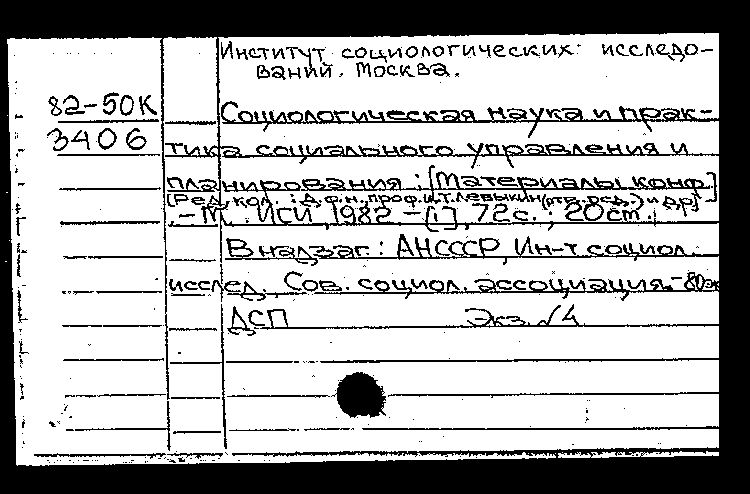 Институт социологических исследо-
ваний. Москва.
82-50К
3406
Социологическая наука и прак-
тика социального управления и
планирования : [Материалы конф.]
[Ред. кол. : д.ф.н. проф. И.Т. Левыкин (отв. ред.) и др.]
. - М. : ИСИ, 1982. - [1], 72 с. ; 20 см.
В надзаг. : АН СССР, Ин-т социол.
исслед., Сов. социол. ассоциация. - 80 эк
ДСП Экз. √4